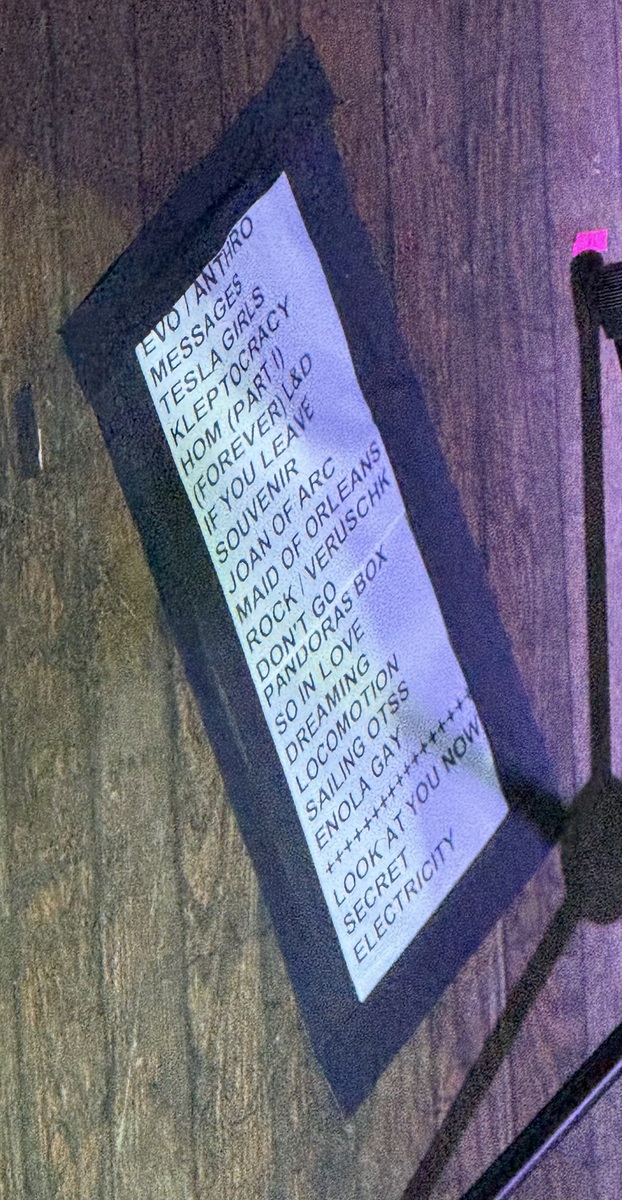 EVO / ANTHRO
MESSAGES
TESLA GIRLS
KLEPTOCRACY
HOM (PART I)
(FOREVER) L&D
IF YOU LEAVE
SOUVENIR
JOAN OF ARC
MAID OF ORLEANS
ROCK / VERUSCHK
DON'T GO
PANDORAS BOX
SO IN LOVE
DREAMING
LOCOMOTION
SAILING OTSS
ENOLA GAY
++++++++++++++++
LOOK AT YOU NOW
SECRET
ELECTRICITY